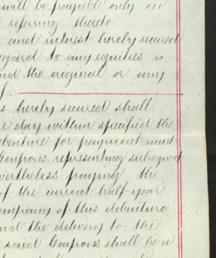 will be payable only on
referring thereto
and interest hereby secured
regard to any equities
and the original or any
s hereby secured shall
e day within specified the
debenture for payment must
Coupons representing subsequent
vertheless paying the
of the current half-year
company of this debenture
and the delivery to the
said Coupons shall be a